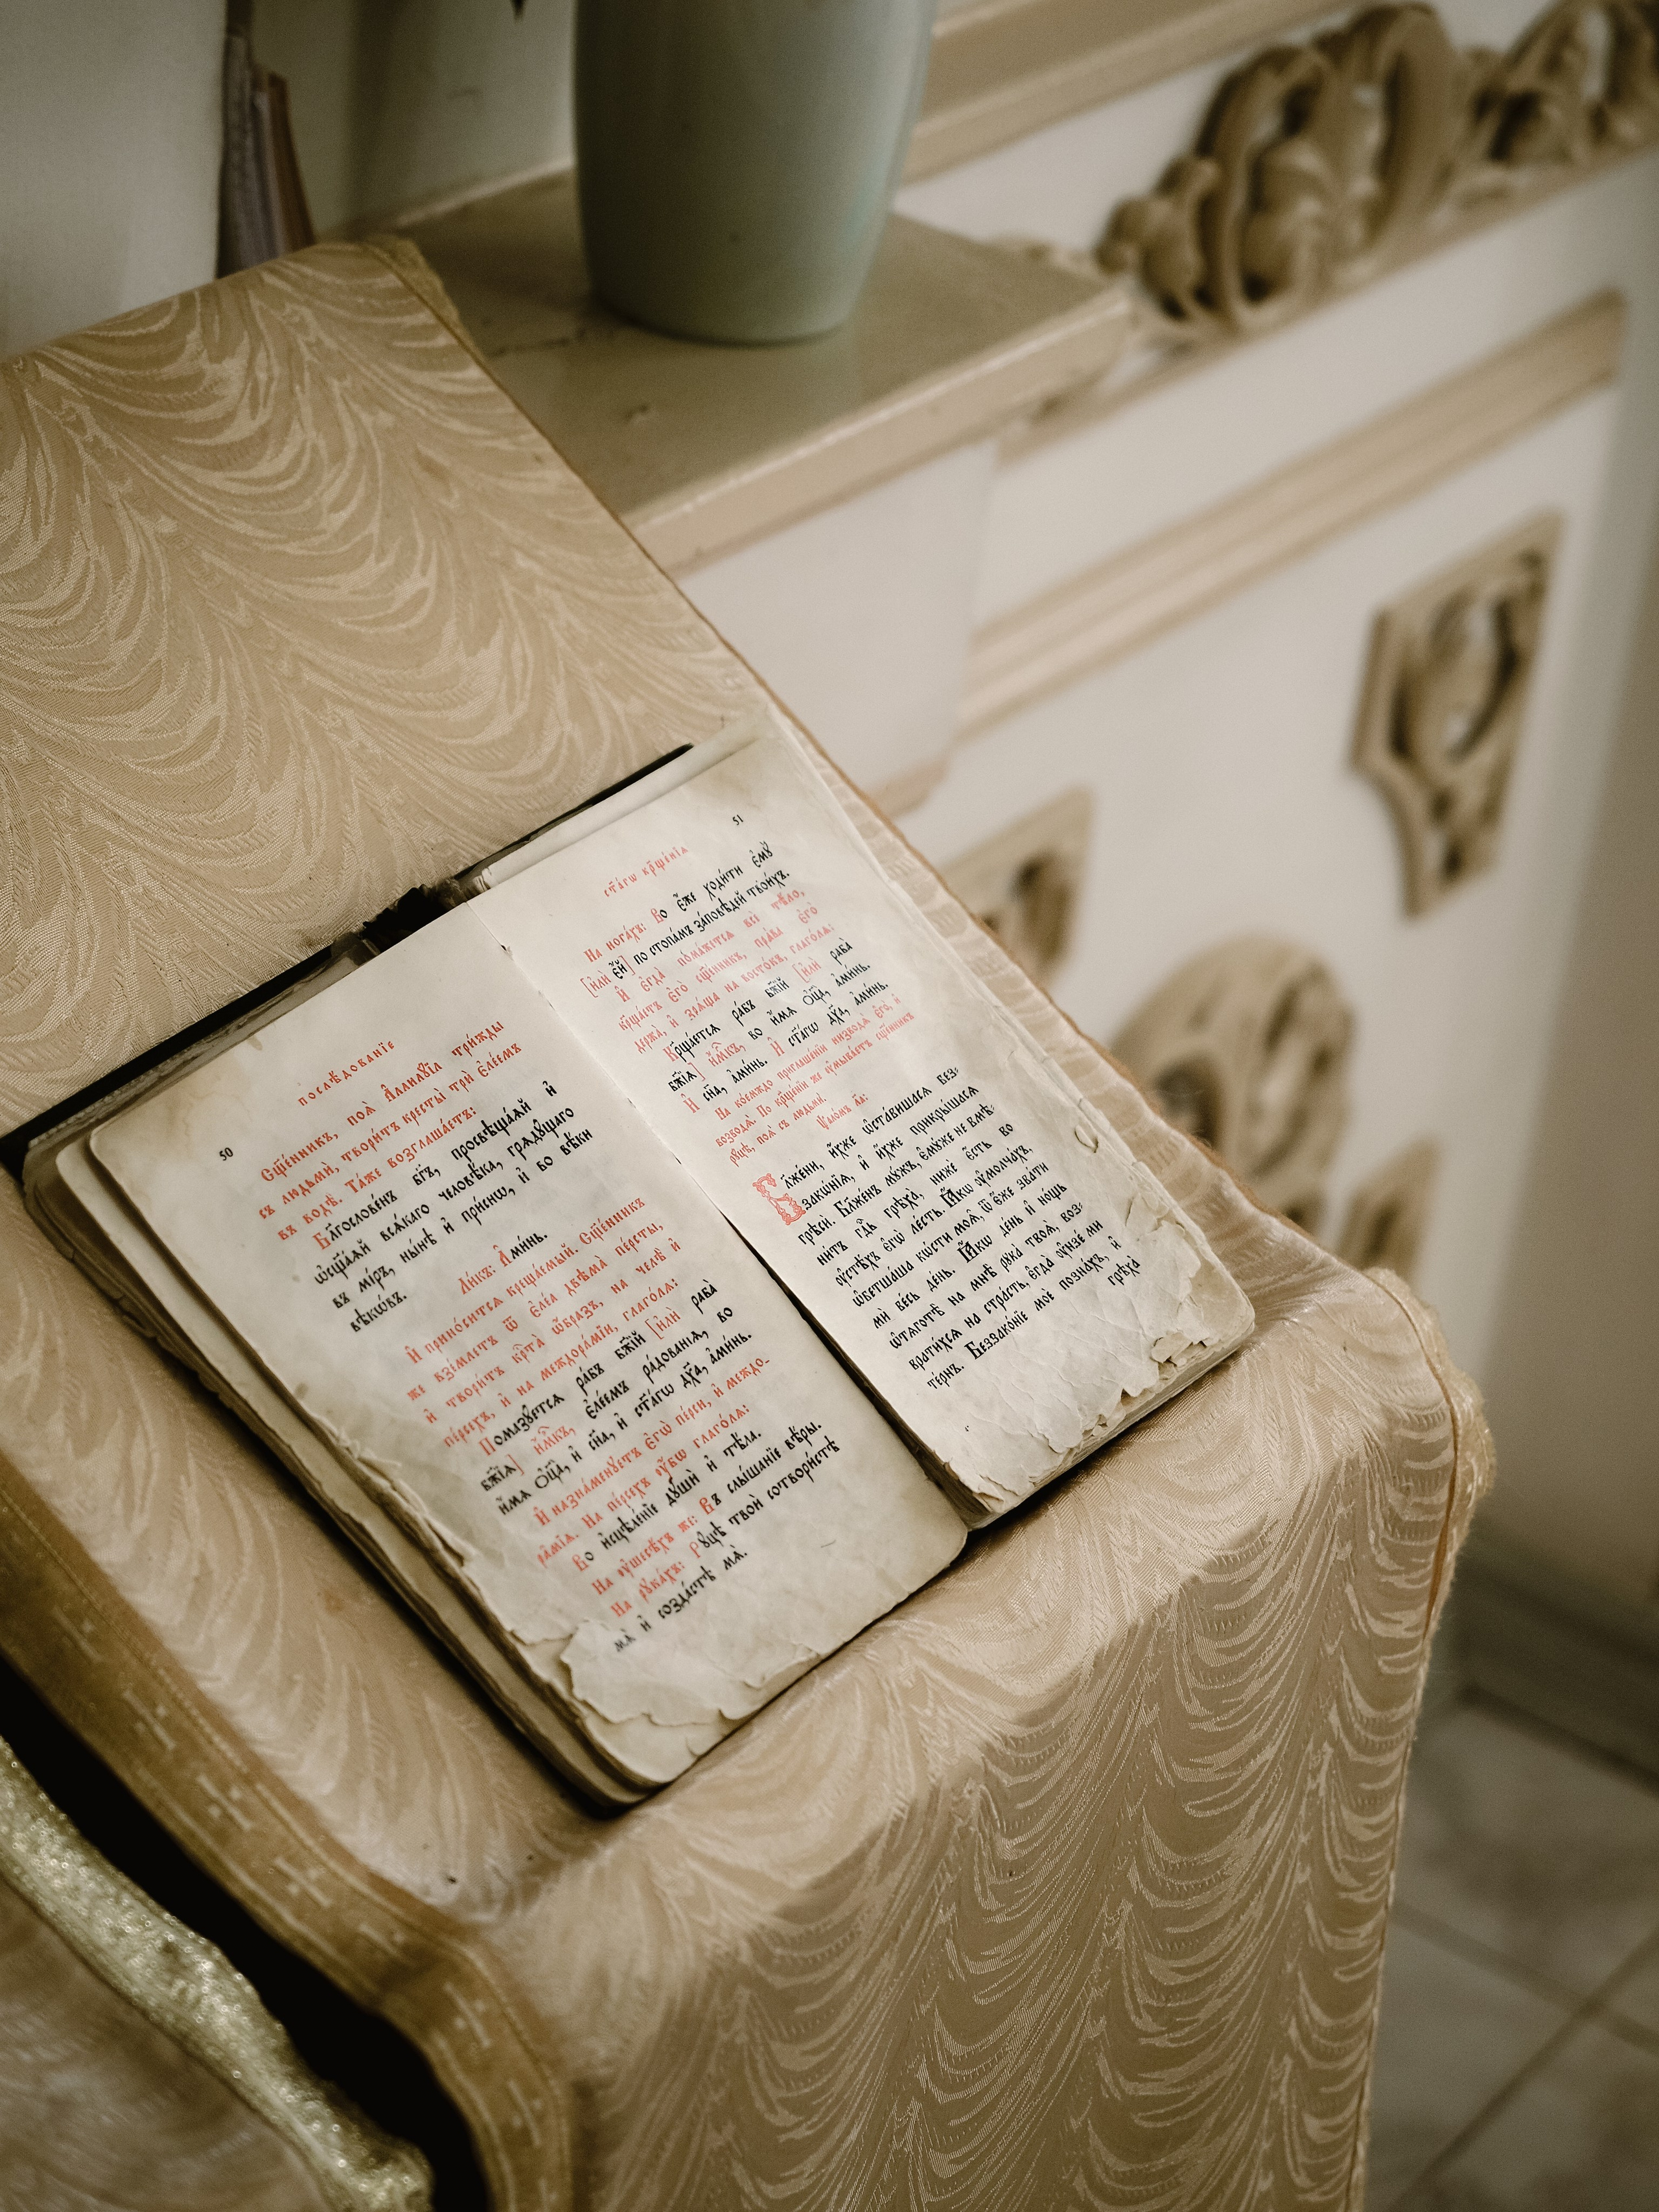 50
послѣ́дованїе
Сщ҃е́нникъ, поѧ̀ А҆ллилѹ́їа три́жды
съ людьмѝ, твори́тъ кресты̀ трѝ є҆ле́емъ
въ водѣ̀. Та́же возглаша́етъ:
Бл҃гослове́нъ бг҃ъ, просвѣща́ѧй и҆
ѡ҆сщ҃а́ѧй всѧ́каго человѣ́ка, грѧдꙋ́щаго
въ мі́ръ, ны́нѣ и҆ при́снѡ, и҆ во вѣ́ки
вѣкѡ́въ.
Ли́къ: А҆ми́нь.
И҆ прино́ситсѧ креща́емый. Сщ҃е́нникъ
же взе́млетъ ѿ є҆ле́а двѣма̀ персты̑,
и҆ твори́тъ крⷭ҇та̀ ѡ҆́бразъ, на челѣ̀ и҆
пе́рсехъ, и҆ на междора́мїи, глаго́лѧ:
Помазꙋ́етсѧ ра́бъ бж҃їй [и҆лѝ раба̀
бж҃їѧ] и҆́м҃къ, є҆ле́емъ ра́дованїѧ, во
и҆́мѧ ѻ҆ц҃а̀, и҆ сн҃а, и҆ ст҃а́гѡ дх҃а, а҆ми́нь.
И҆ назна́менꙋетъ є҆гѡ̀ пе́рси, и҆ междо-
ра́мїѧ. На пе́рсехъ ᲂу҆́бѡ глаго́лѧ:
Во и҆сцѣле́нїе дꙋшѝ и҆ тѣ́ла.
На ᲂу҆шесѣ́хъ же: Въ слы́шанїе вѣ́ры.
На рꙋка́хъ: Рꙋ́цѣ твоѝ сотвори́стѣ
мѧ̀ и҆ созда́стѣ мѧ̀.
51
ст҃а́гѡ крⷭ҇ще́нїѧ
На нога́хъ: Во є҆́же ходи́ти є҆мꙋ̀
[и҆лѝ є҆́й] по стопа́мъ за́повѣдей твои́хъ.
И҆ є҆гда̀ пома́жетсѧ всѐ тѣ́ло,
крⷭ҇ща́етъ є҆го̀ сщ҃е́нникъ, пра́ва є҆го̀
держа̀, и҆ зрѧ́ща на восто́къ, глаго́лѧ:
Крⷭ҇ща́етсѧ ра́бъ бж҃їй [и҆лѝ раба̀
бж҃їѧ] и҆́м҃къ, во и҆́мѧ ѻ҆ц҃а̀, а҆ми́нь.
И҆ сн҃а, а҆ми́нь. И҆ ст҃а́гѡ дх҃а, а҆ми́нь.
На ко́емждо приглаше́нїи низводѧ̀ є҆го̀, и҆
возводѧ̀. По крⷭ҇ще́нїи же ᲂу҆мыва́етъ сщ҃е́нникъ
рꙋ́цѣ, поѧ̀ съ людьмѝ.
Ѱало́мъ л҃а:
Бл҃же́ни, и҆̀хже ѡ҆ста́вишасѧ без-
закѡ́нїѧ, и҆ и҆̀хже прикры́шасѧ
грѣсѝ. Бл҃же́нъ мꙋ́жъ, є҆мꙋ́же не вмѣ-
ни́тъ гдⷭ҇ь грѣха̀, нижѐ є҆́сть во
ᲂу҆стѣ́хъ є҆гѡ̀ ле́сть. Ꙗ҆́кѡ ᲂу҆молча́хъ,
ѡ҆бетша́ша кѡ́сти моѧ̑, ѿ є҆́же зва́ти
мѝ ве́сь де́нь. Ꙗ҆́кѡ де́нь и҆ но́щь
ѡ҆тѧготѣ̀ на мнѣ̀ рꙋка̀ твоѧ̀, воз-
врати́хсѧ на стра́сть, є҆гда̀ ᲂу҆нзе́ ми
те́рнъ. Беззако́нїе моѐ позна́хъ, и҆
грѣха̀